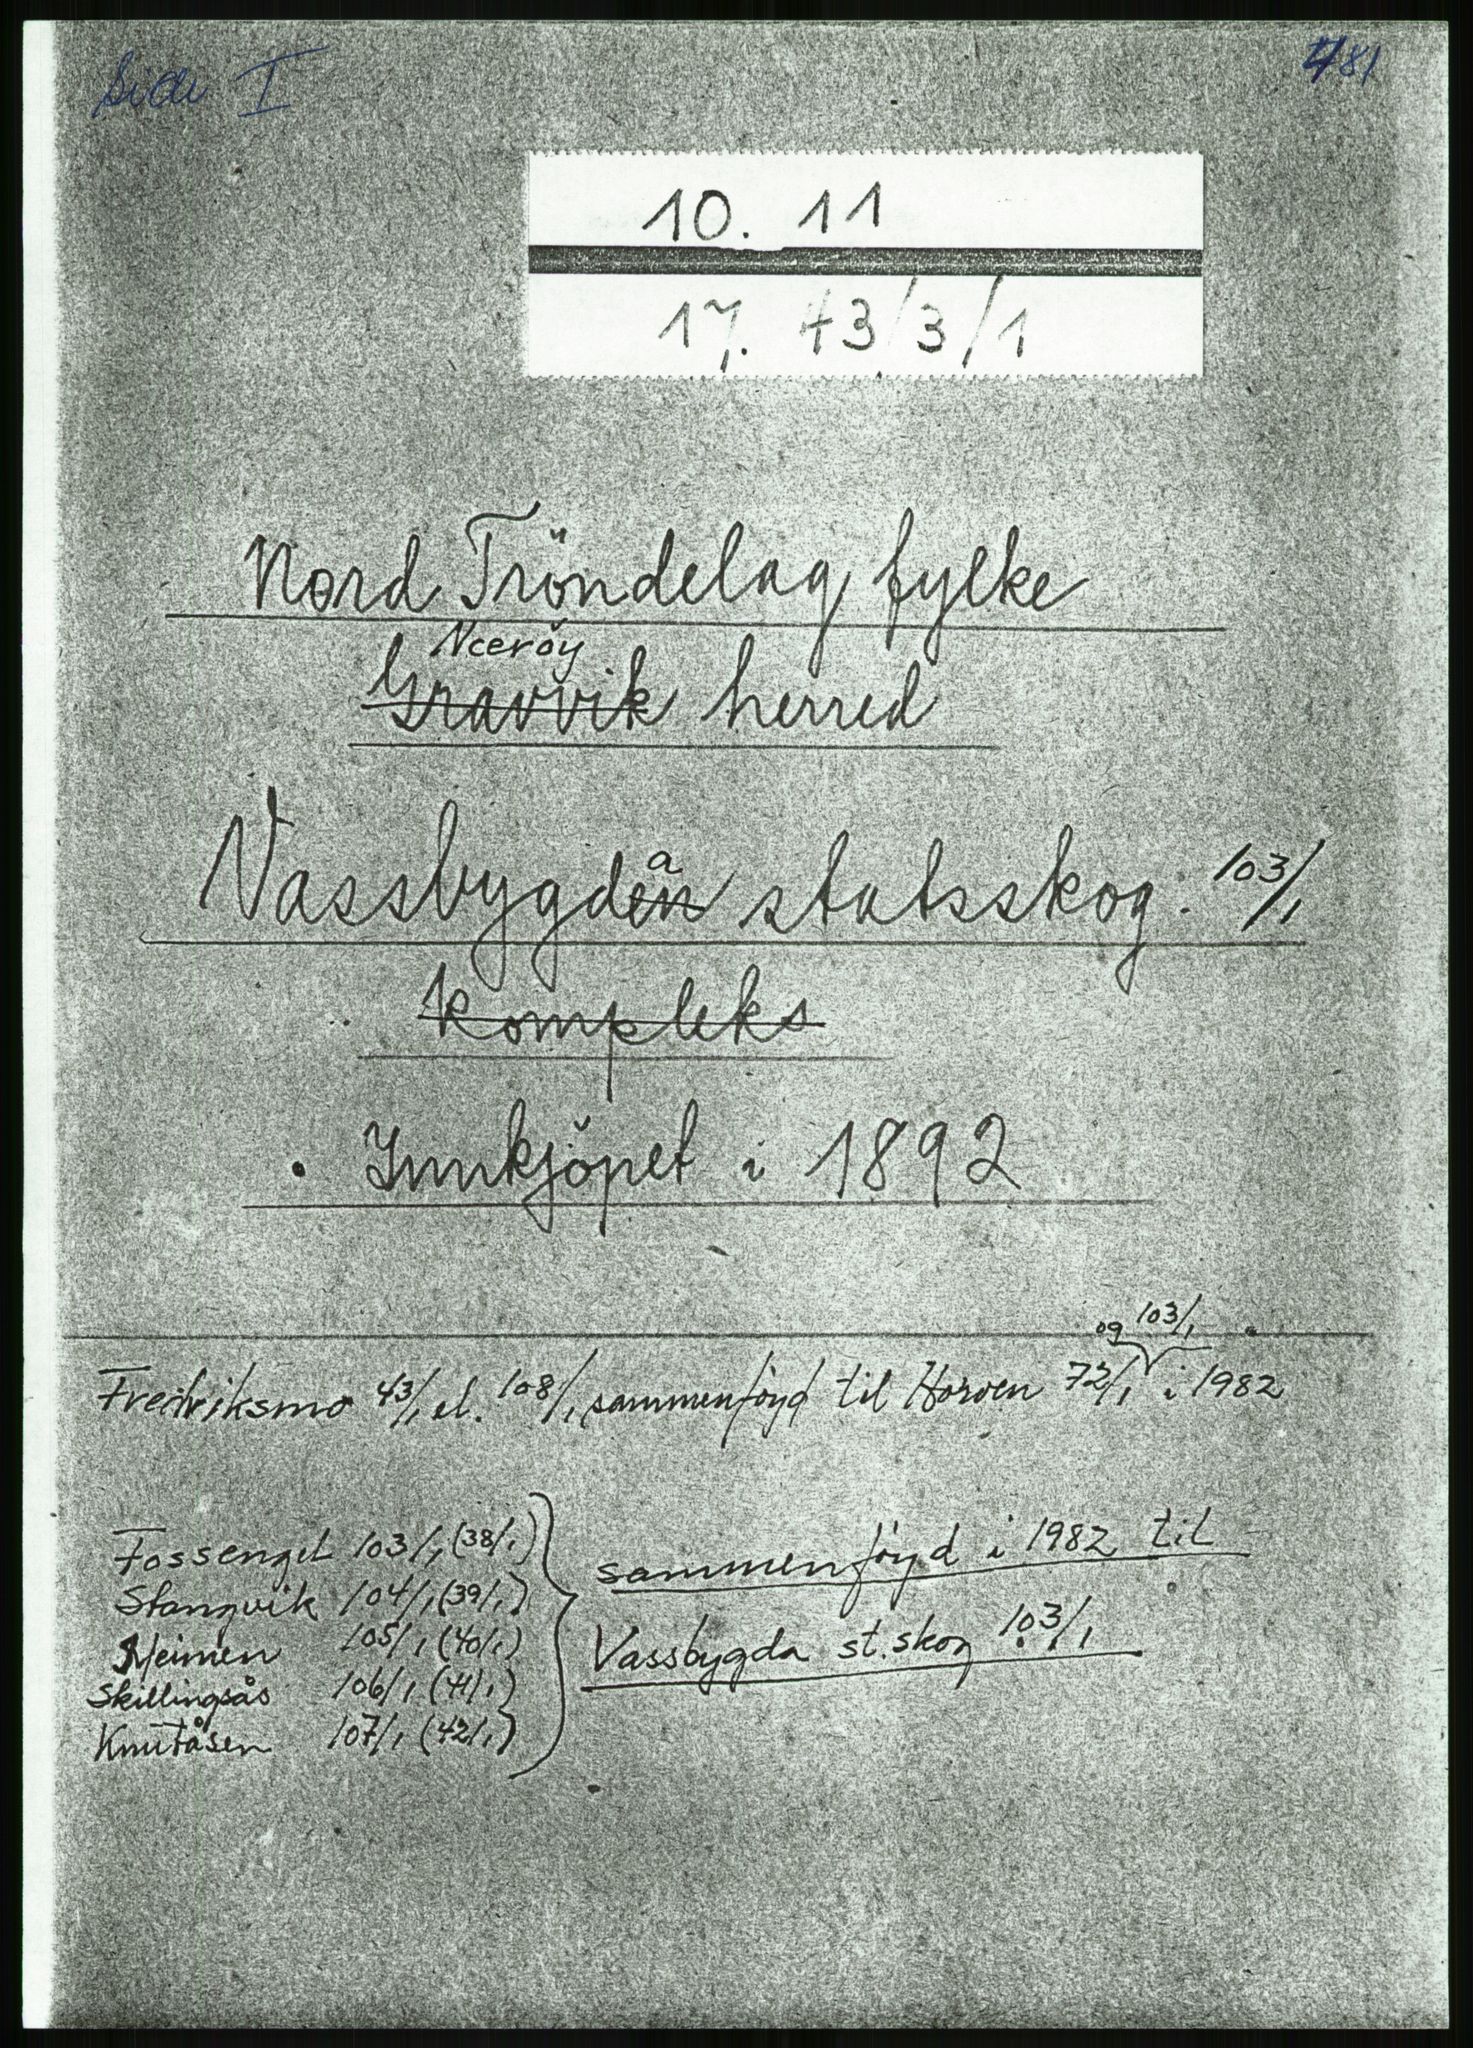 Side I
481
10. 11
17. 43/3/1
Nord Tröndelag fylke
Nœröy
Gravvik herred
Vassbygden a statsskog. 103/1
Kompleks
Innkjöpet i 1892
og 103/1
Fredriksmo 43/1 el. 108/1 sammenföyd til Horven 72/1 i 1982
Fossenget 103/1 (38/1)
Stangvik 104/1 (39/1)
Heimen 105/1 (40/1)
Skillingsås 106/1 (41/1)
Knutåsen 107/1 (42/1)
sammenföyd i 1982 til
Vassbygda st.skog 103/1